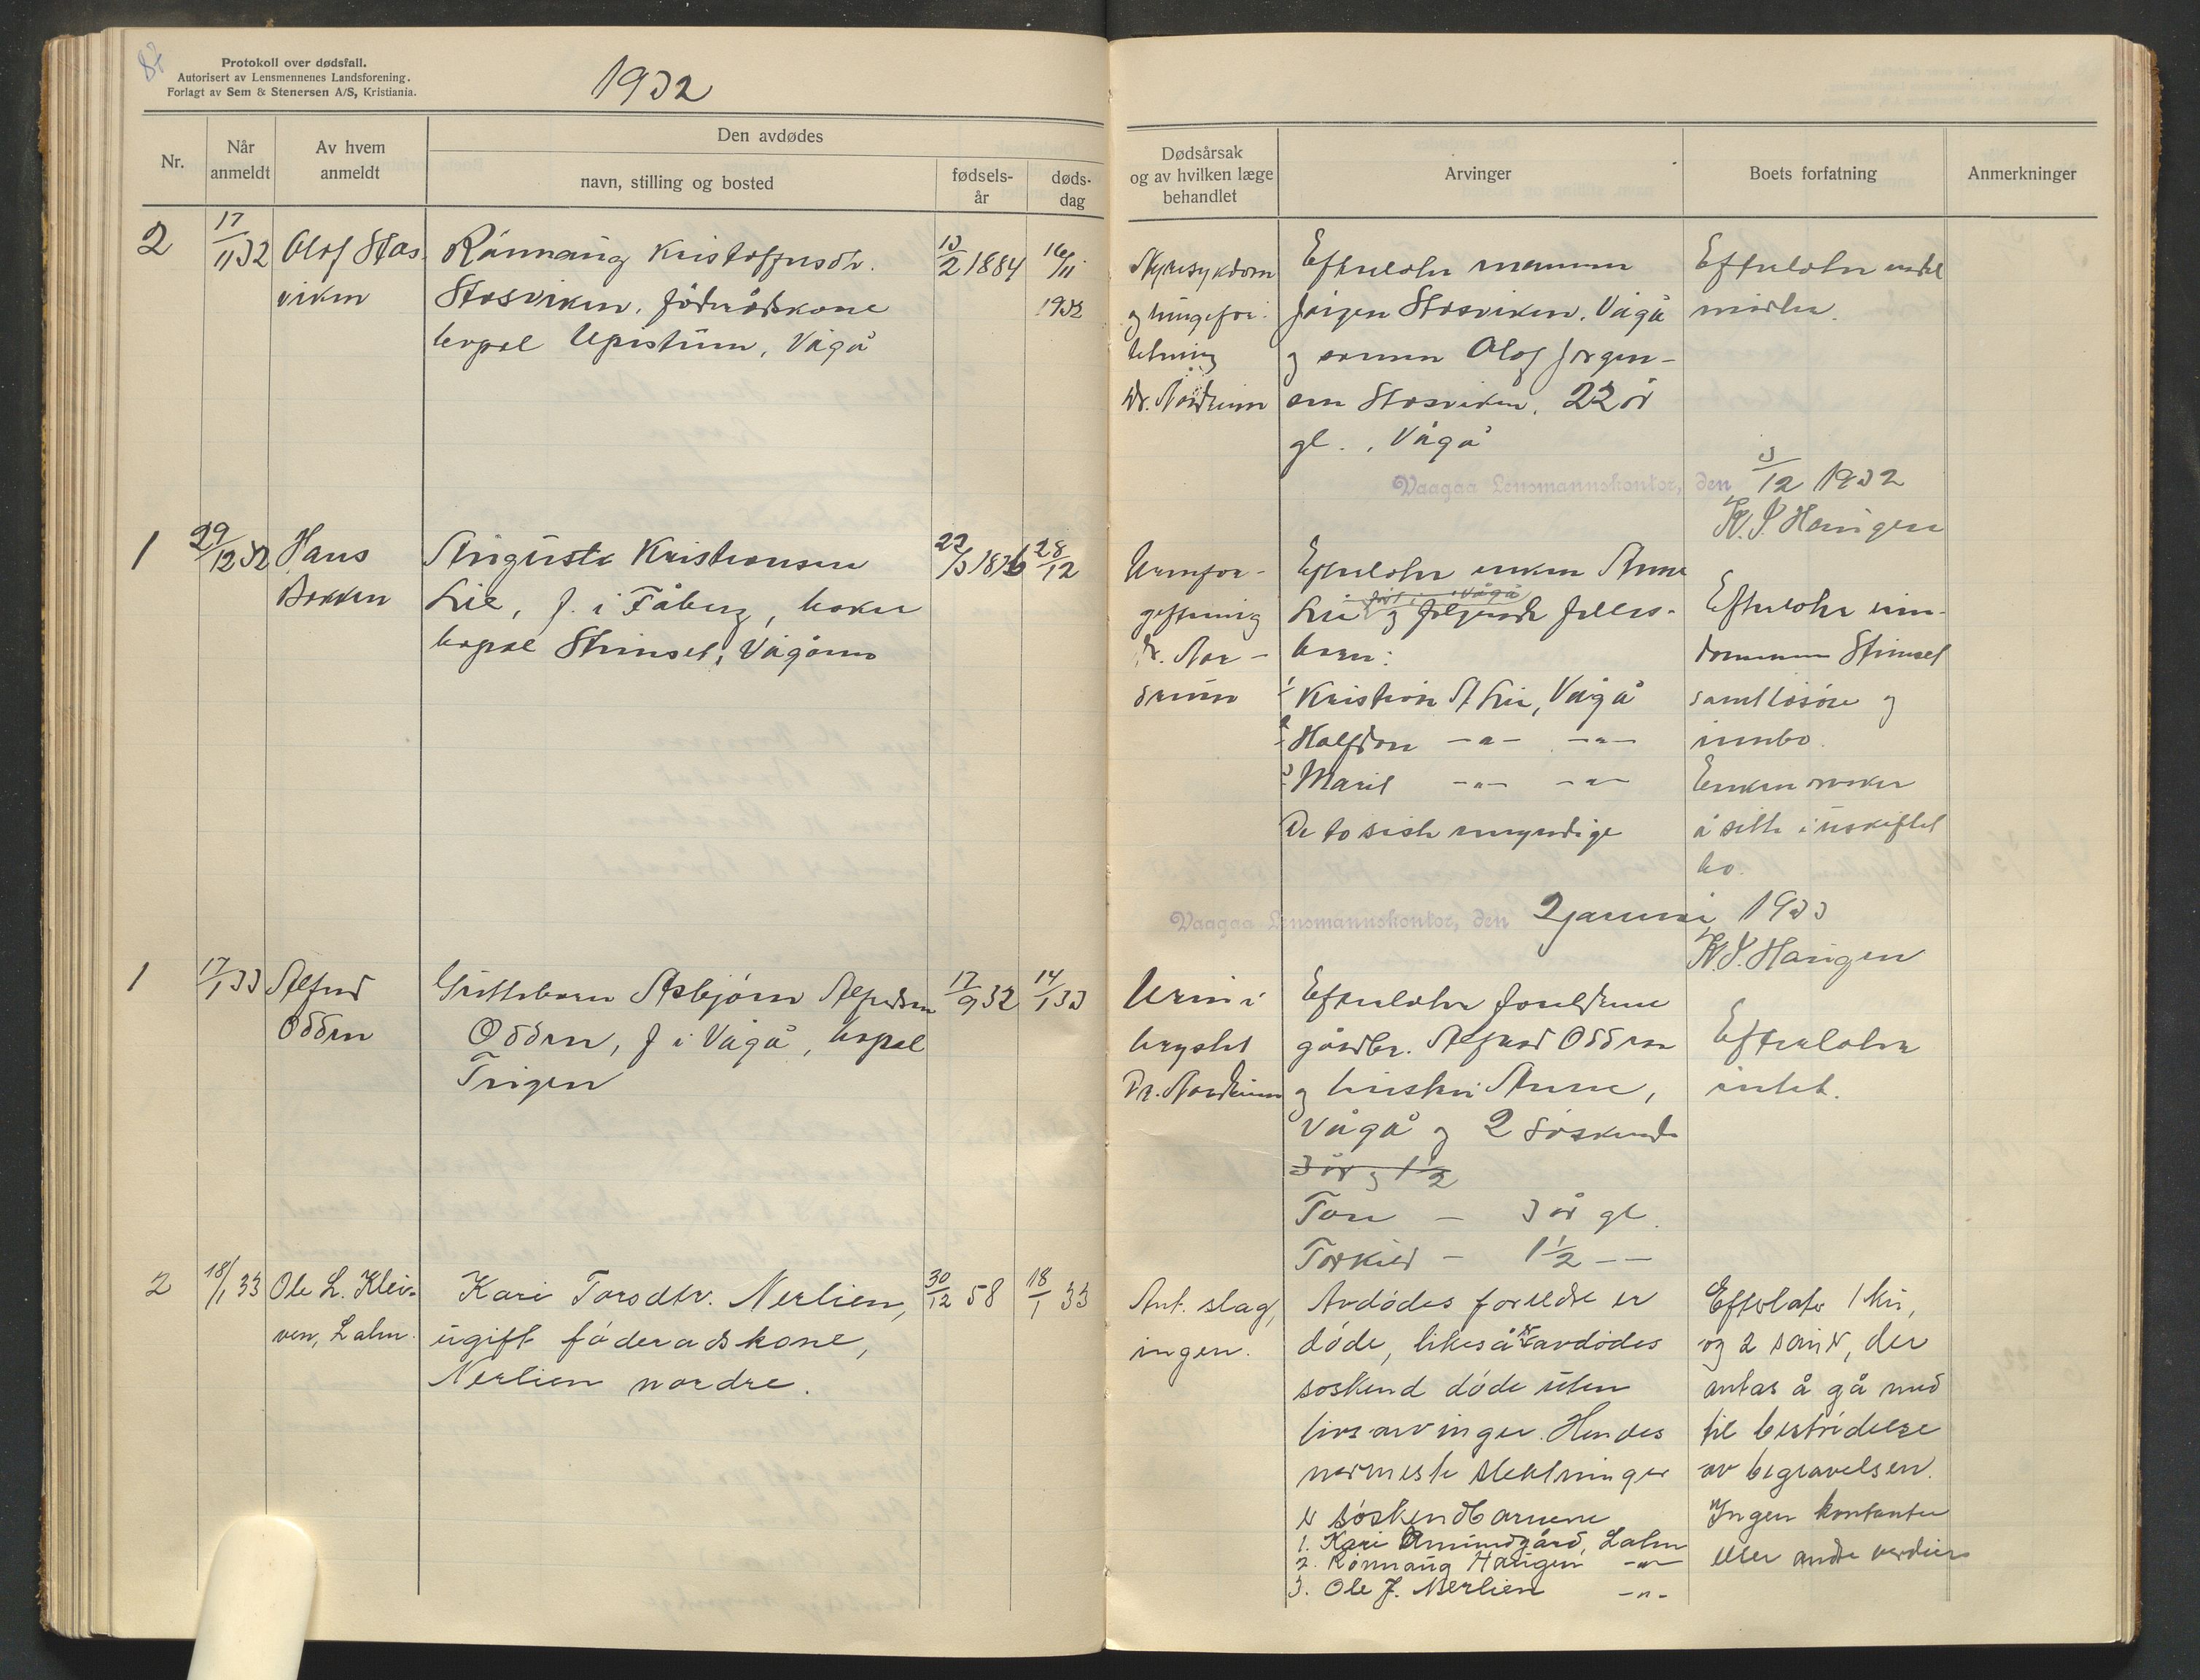 87
Protokoll over dødsfall.
Autorisert av Lensmennenes Landsforening.
Forlagt av Sem & Stenersen A/S, Kristiania.
1932
Nr.
Når anmeldt
Av hvem anmeldt
Den avdødes
navn, stilling og bosted
fødsels-år
døds-dag
Dødsårsak og av hvilken læge behandlet
Arvinger
Boets forfatning
Anmerkninger
2
17/11 32
Olof Stas
viken
Rönnaug Kristoffersdtr.
Stasviken, föderådskone
bopæl Upistuun, Vågå
13/2 1884
16/11
1932
og lungebe-
telning
Dr. Nordrum
Efterlater mannen
Jörgen Stasviken, Vågå
og sønnen Olof Jørgen-
sen Stasviken, 22 år
gl., Vågå
Efterlater endel
midler.
Vaagaa Lensmannskontor, den 3/12 1932
K. J. Haugen
1
29/12 32
Hans
Bakken
August Kristiansen
Lie, f. i Fåberg, baker
bopæl Strinset, Vågåmo
22/3 1876
28/12
Urinfor-
giftning
Dr. Nor-
drum
Efterlater enken Anne
Lie født i Vågå og følgende felles-
barn:
1 Kristian A Lie, Vågå
2 Halfdan -"- -"-
3 Marit -"- -"-
De to siste umyndige
Efterlater eien-
dommen Strinset
samt løsøre og
innbo.
Enken ønsker
å sitte i uskiftet
bo.
Vaagaa Lensmannskontor, den 2 januar 1933
K. J. Haugen
1
17/1 33
Alfred
Odden
Guttebarn Asbjørn Alfredsen
Odden, f i Vågå, bopæl
17/9 32
14/1 33
brystet
Dr. Nordrum
Efterlater foreldrene
gårdbr. Alfred Odden
og hustru Anne,
Vågå og 2 søskende
3 år og 1 1/2
Tore – 3 år gl.
Torkild – 1 1/2 – –
Efterlater
intet.
2
18/1 33
Ole L. Klei-
ven, Lalm.
Kari Torsdtr. Nerlien,
ugift føderadskone,
Nerlien nordre.
30/12 58
18/1 33
Ant. slag,
ingen.
Avdødes foreldre er
døde, likeså er avdødes
søskend døde uten
livsarvinger. Hendes
nærmeste slektninger
er søskendbarnene
1. Kari Amundgård, Lalm
2. Rönnaug Haugen -"-
3. Ole J. Nerlien -"-
Efterlater 1 ku,
og 2 sauer, der
antas å gå med
til bestridelse
av begravelsen.
Ingen kontanter
eller andre verdier